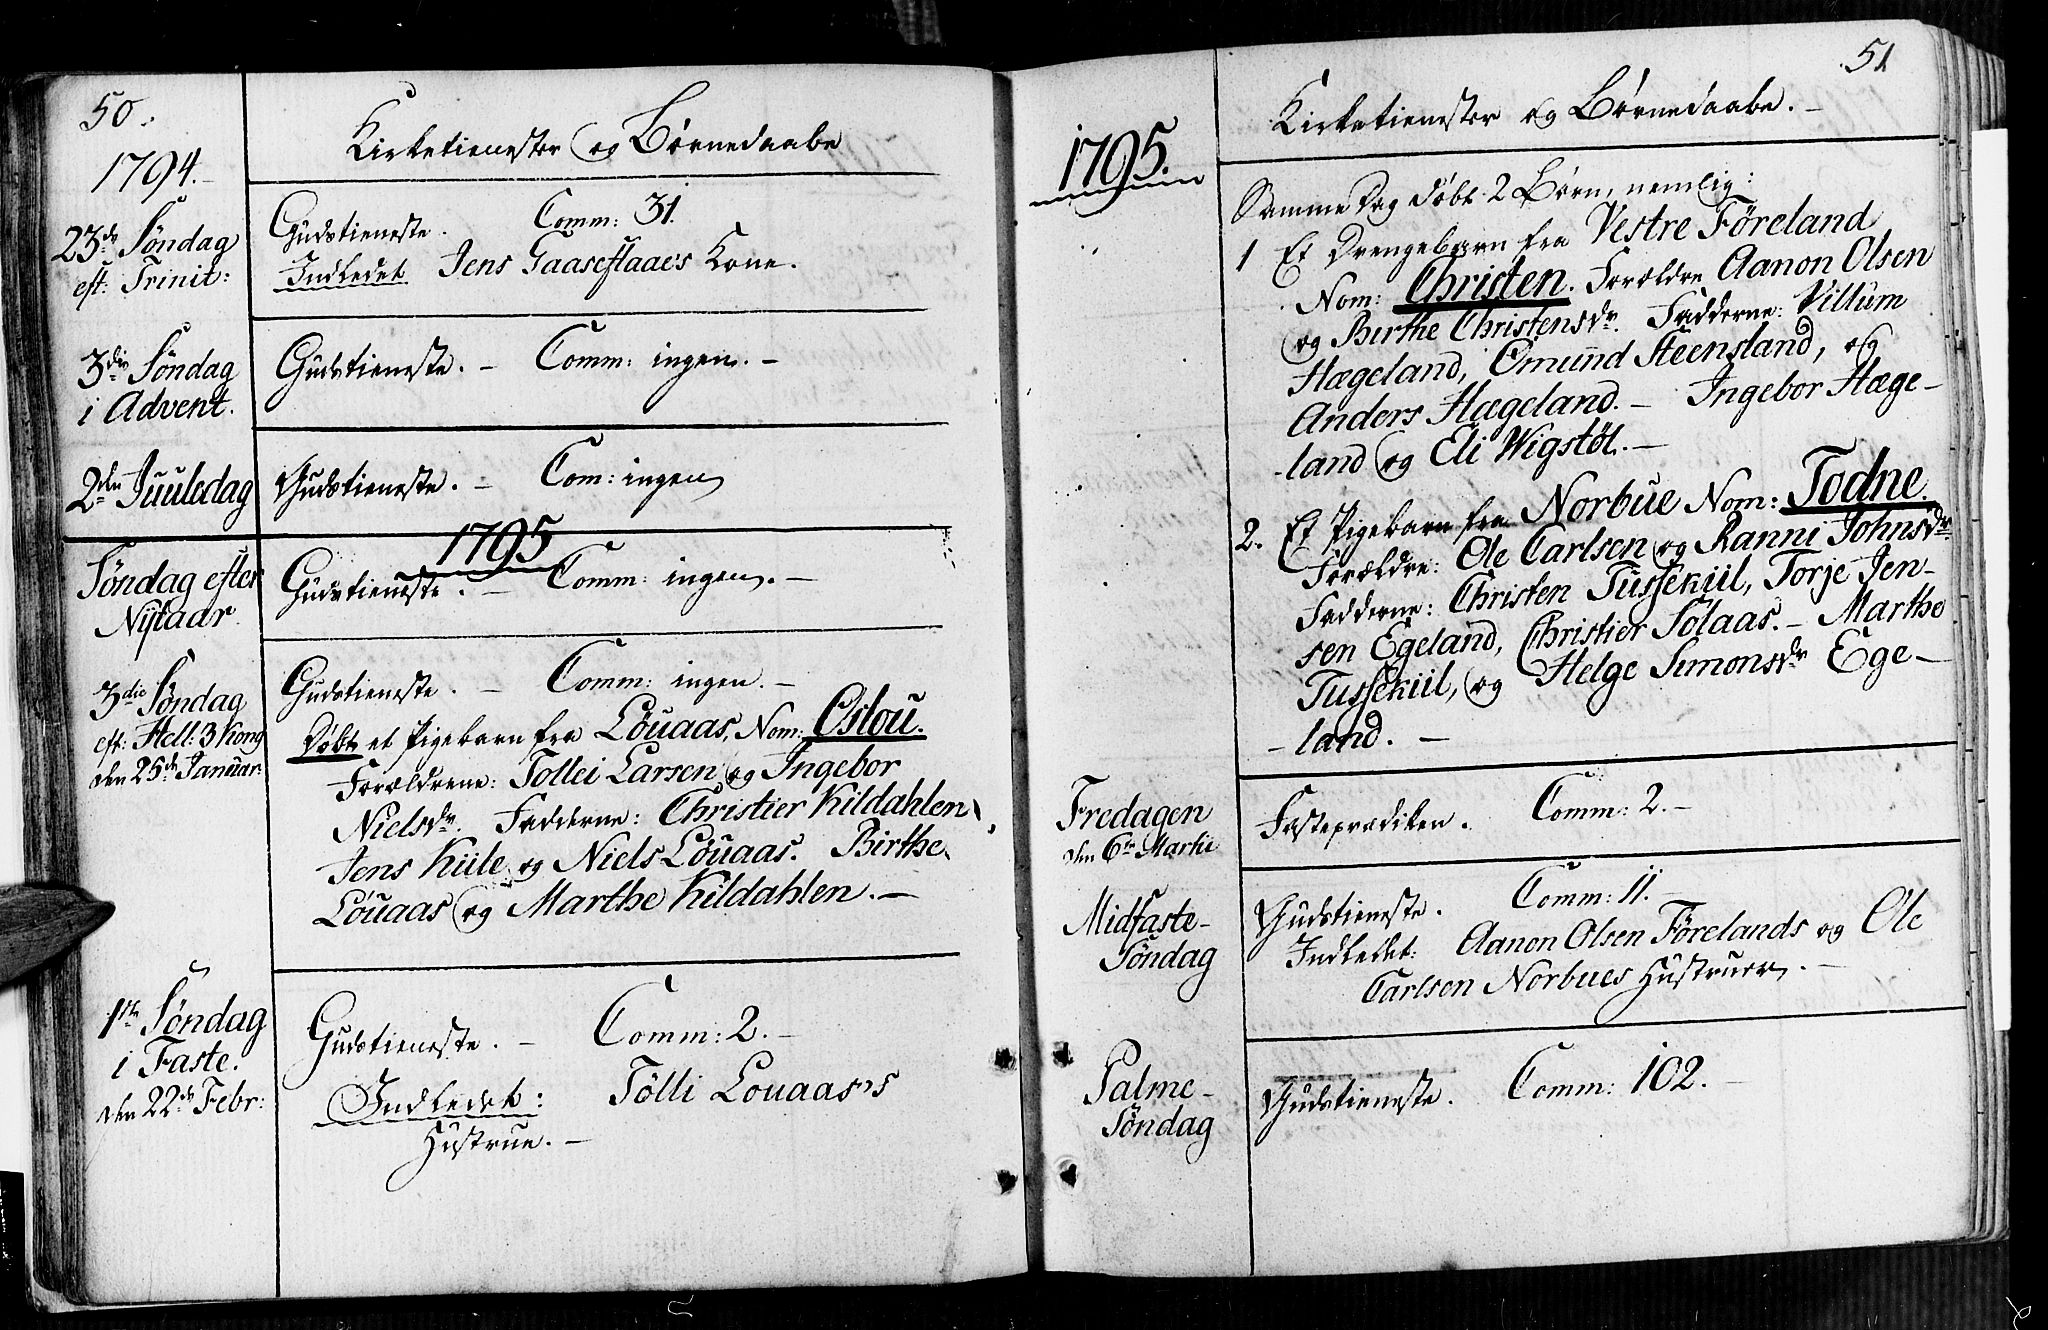 50.
1794.
Kirketienester og Børnedaabe
23de Søndag
eft: Trinit:
Gudstieneste. Comm: 31.
Indledet Jens Gaaseflaaes Kone.
3die Søndag
i Advent.
Gudstieneste. – Comm: ingen. –
2den Juuledag
Gudstieneste. – Com: ingen
1795
Søndag efter
Nÿtaar.
Gudstieneste. – Comm: ingen. –
3die Søndag
eft: Hell: 3 Kong
den 25de Januar:
Gudstieneste. – Comm: ingen. –
Døbt et Pigebarn fra Löuaas, Nom: Oslou.
Forældrene: Tollei Larsen og Ingebor
Nielsdr. Fadderne: Christier Kildahlen,
Jens Kiile og Niels Löuaas. Birthe
Löuaas og Marthe Kildahlen. –
1ste Søndag
i Faste.
den 22de Febr:
Gudstieneste. – Comm: 2. –
Indledet: Tölli Louaas's
Hustrue. –
51
1795.
Kirketienester og Børnedaabe. –
Samme Dag døbt 2 Børn, nemlig:
1 Et Drengebarn fra Vestre Föreland
Nom: Christen. Forældre Aanon Olsen
og Birthe Christensdr. Fadderne: Villum
Hægeland, Omund Steensland, og
Anders Hægeland. – Ingebor Hæge-
-land og Eli Wigstöl. –
2. Et Pigebarn fra Norbue Nom: Todne.
Forældre: Ole Carlsen og Ranni Johnsdr.
Fadderne: Christen Tussekiil, Torje Jen-
sen Egeland, Christier Solaas. – Marthe
Tussekiil, og Helge Simonsdr Ege-
-land. –
Fredagen
den 6te Martii
Fasteprædiken. Comm: 2. –
Midfaste-
Söndag
Gudstieneste. Comm: 11. –
Indledet: Aanon Olsen Förelands og Ole
Carlsen Norbues Hustruer. –
Palme-
Söndag
Gudstieneste. Comm: 102. –